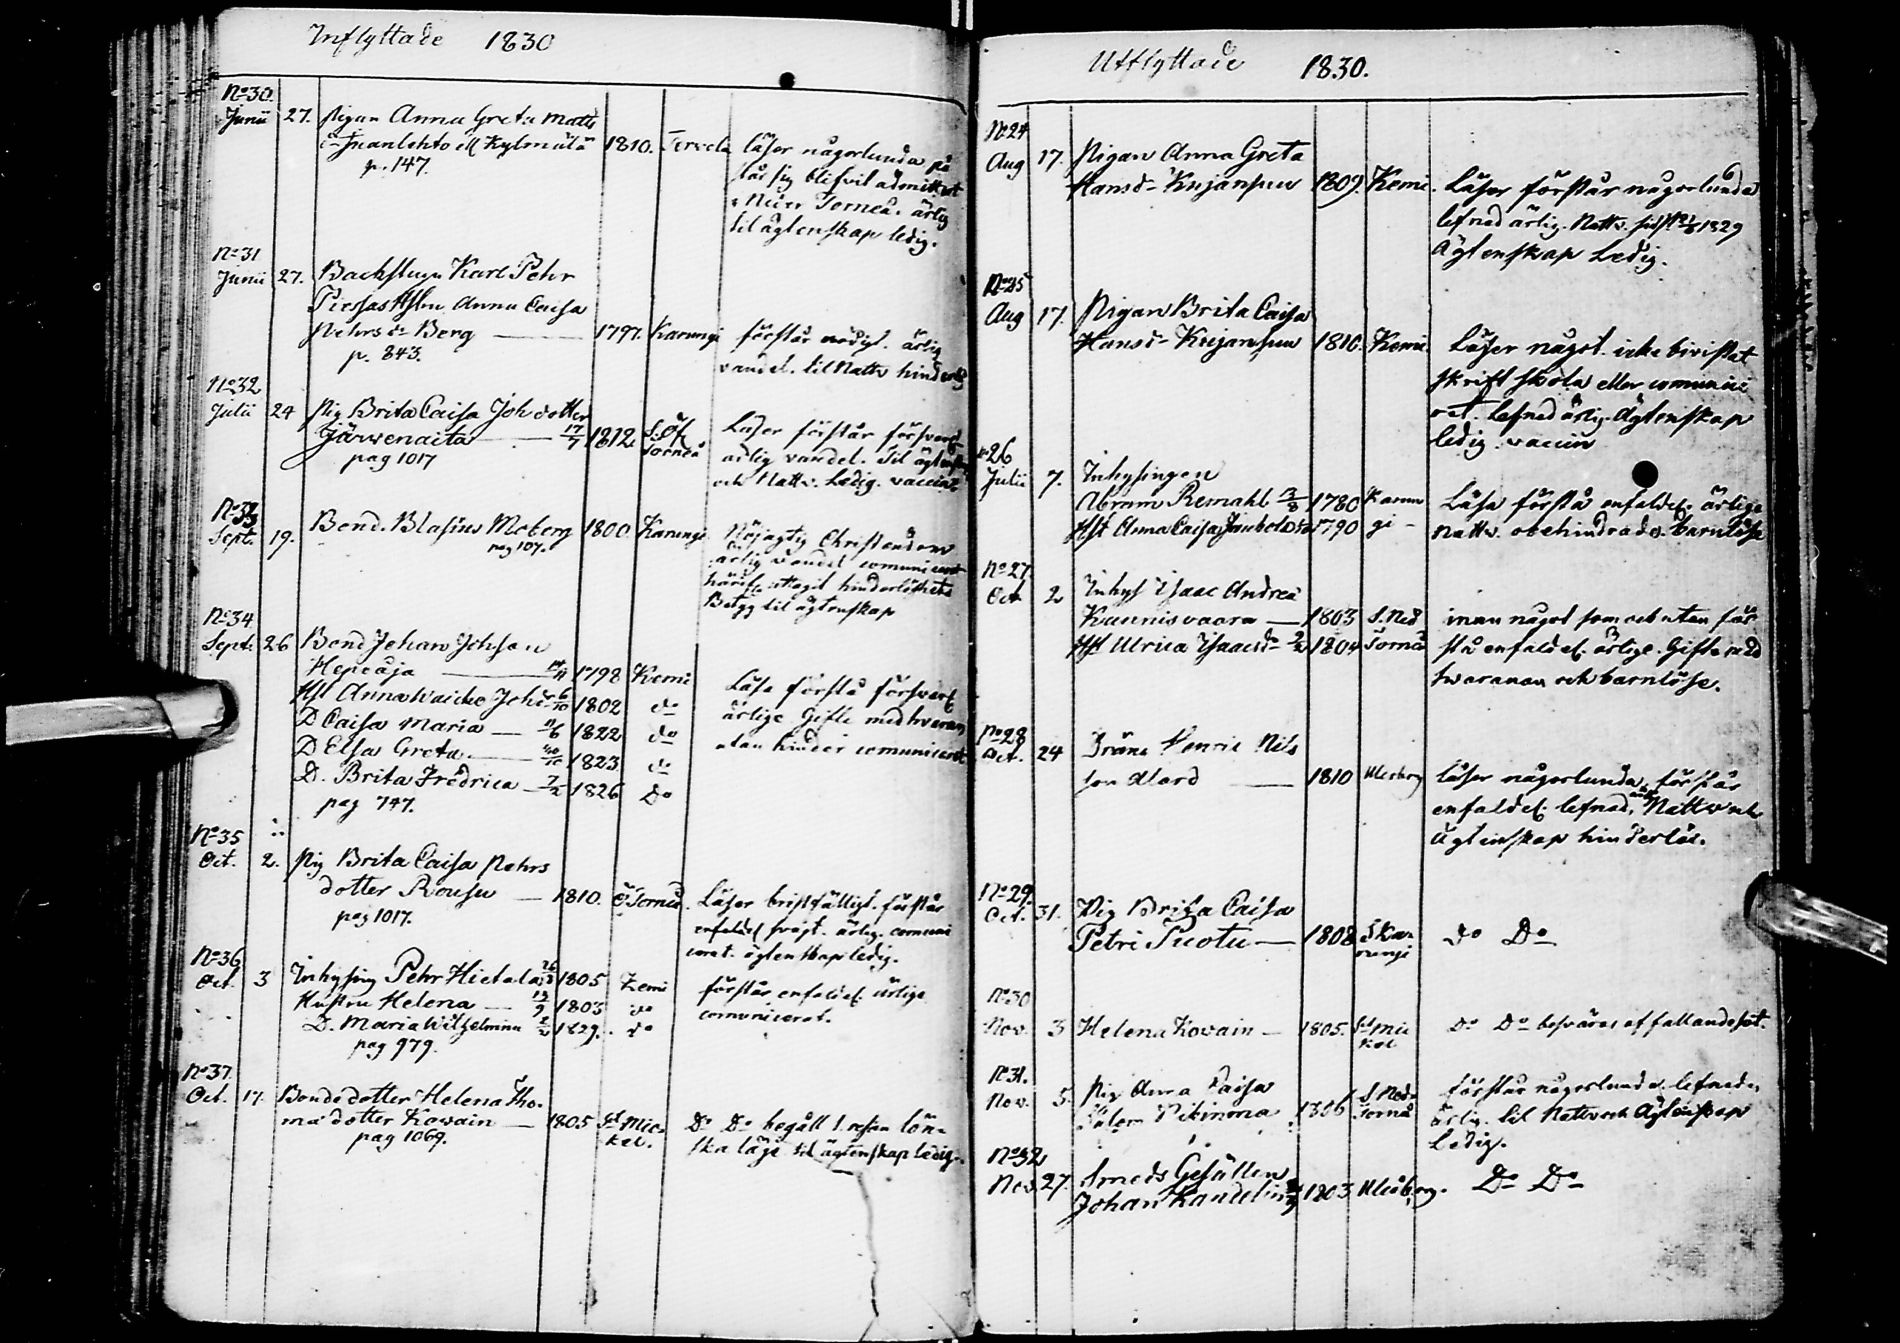 Inflyttade 1830
No 30.
Junii 27. Pigan Anna Greta Matts
d:r Juanlehto ell Kylmälä 1810. Tervola
p. 147.
Läser någorlunda på
står sig blifvit admitterat
i Neder Torneå. ärlig
til ägtenskap ledig.
No 31
Junii 27. Backstugu Karl Pehr
Hstu Anna Caisa
Pehrs dr Berg — 1797. Karungi
p. 843.
förstår nödigt. ärlig
vandel. til Nattv hinderlös
No 32
Julii 24 Pig Brita Caisa Joh dotter
Järwenaita — 17/7 1812
Torneå
pag 1017
Läser förstår försvarl
ärlig vandel. Til ägtenskap
och Nattv. Ledig. vaccin
No 33
Sept. 19. Bond. Blasius Moberg 1800. Karungi
pag 107.
Nöjagtig Christendom
ärlig vandel comunicerat
härifr: uttagit hinderlöshets
Betyg til ägtenskap
No 34
Sept: 26 Bond Johan Johsson
Hepoaja — 1798 Kemi
Hst Anna Waicko Joh dr 6/10 1802 do
D Caisa Maria — 11/6 1822 do
D Elsa Greta — 1823 do
D. Brita Fredrica — 7/2 1826 Do
pag 747.
Läsa förstå försvarl
ärlige Gifte med hvaran
utan hinder comunicerat
No 35
Oct. 2. Pig Brita Caisa Pehrs
dotter Rousu — 1810. Ö Torneå
pag 1017.
Läser bristfälligt. förstår
enfaldel svagt. ärlig. comuni
cerat. ägtenskap ledig.
No 36
Oct. 3 Inhysing Pehr Hietala 1805 Kemi
Hustru Helena — 13/9 1803 do
D. Maria Wilhelmina 1829. do
pag 979.
förstår enfaldel. ärlige
comunicerat.
No 37
Oct. 17. Bondedotter Helena Tho-
mædotter Kowain — 1805 St Mic-
kel.
pag 1069.
Do Do begått 1. resan lön-
ska läge til ägtenskap ledig.
Utflyttade 1830.
No 24
Aug 17. Pigan Anna Greta
Hansd- Knjanpuu 1809. Kemi.
Läser förstår någorlunda
lefnad ärlig. Nattv. sist 1829
Ägtenskap Ledig.
No 25
Aug 17. Pigan Brita Caisa
Hansd- Knjanpuu 1810. Kemi
Läser något. icke bivistat
skrift skola eller comunice
rat. lefnad ärlig. Ägtenskap
ledig. vaccin
No 26
Julii 7. Inhysingen
Abram Remahl 1780 Karun
Hst Anna Caisa 1790 gi-
Läsa förstå enfaldel. ärlige
Nattv. obehindrade. barnlösa
No 27
Oct 2 Inhys Isaac Andreæ
Kunnisvaara — 1803 S. Ned
Hst Ulrica Isaacsdr 1804 Torneå
innan något som ock utan för
stå enfaldel. ärlige. Gifte med
hvarannan och barnlöse.
No 28
Oct. 24 Dräng Henric Nils
son — 1810 Uleåborg
läser någorlunda, förstår
enfaldel. lefnad. Nattv och
ägtenskap hinderlös.
No 29.
Oct. 31. Pig Brita Caisa
Petri Puotu — 1808 S Ka-
rungi
Do Do
No 30
Nov. 3 Helena Kowain — 1805. St Mic
kel
Do Do besväras af fallandesot.
No 31.
Nov. 5. Pig Anna Caisa
1806 S. Ned-
Torneå
Förstår någorlunda. lefnad
ärlig. til Nattv och Ägtenskap
Ledig.
No 32
Nov. 27. Smeds Gesällen
Johan Kandelin 1803 Uleåborg.
Do Do